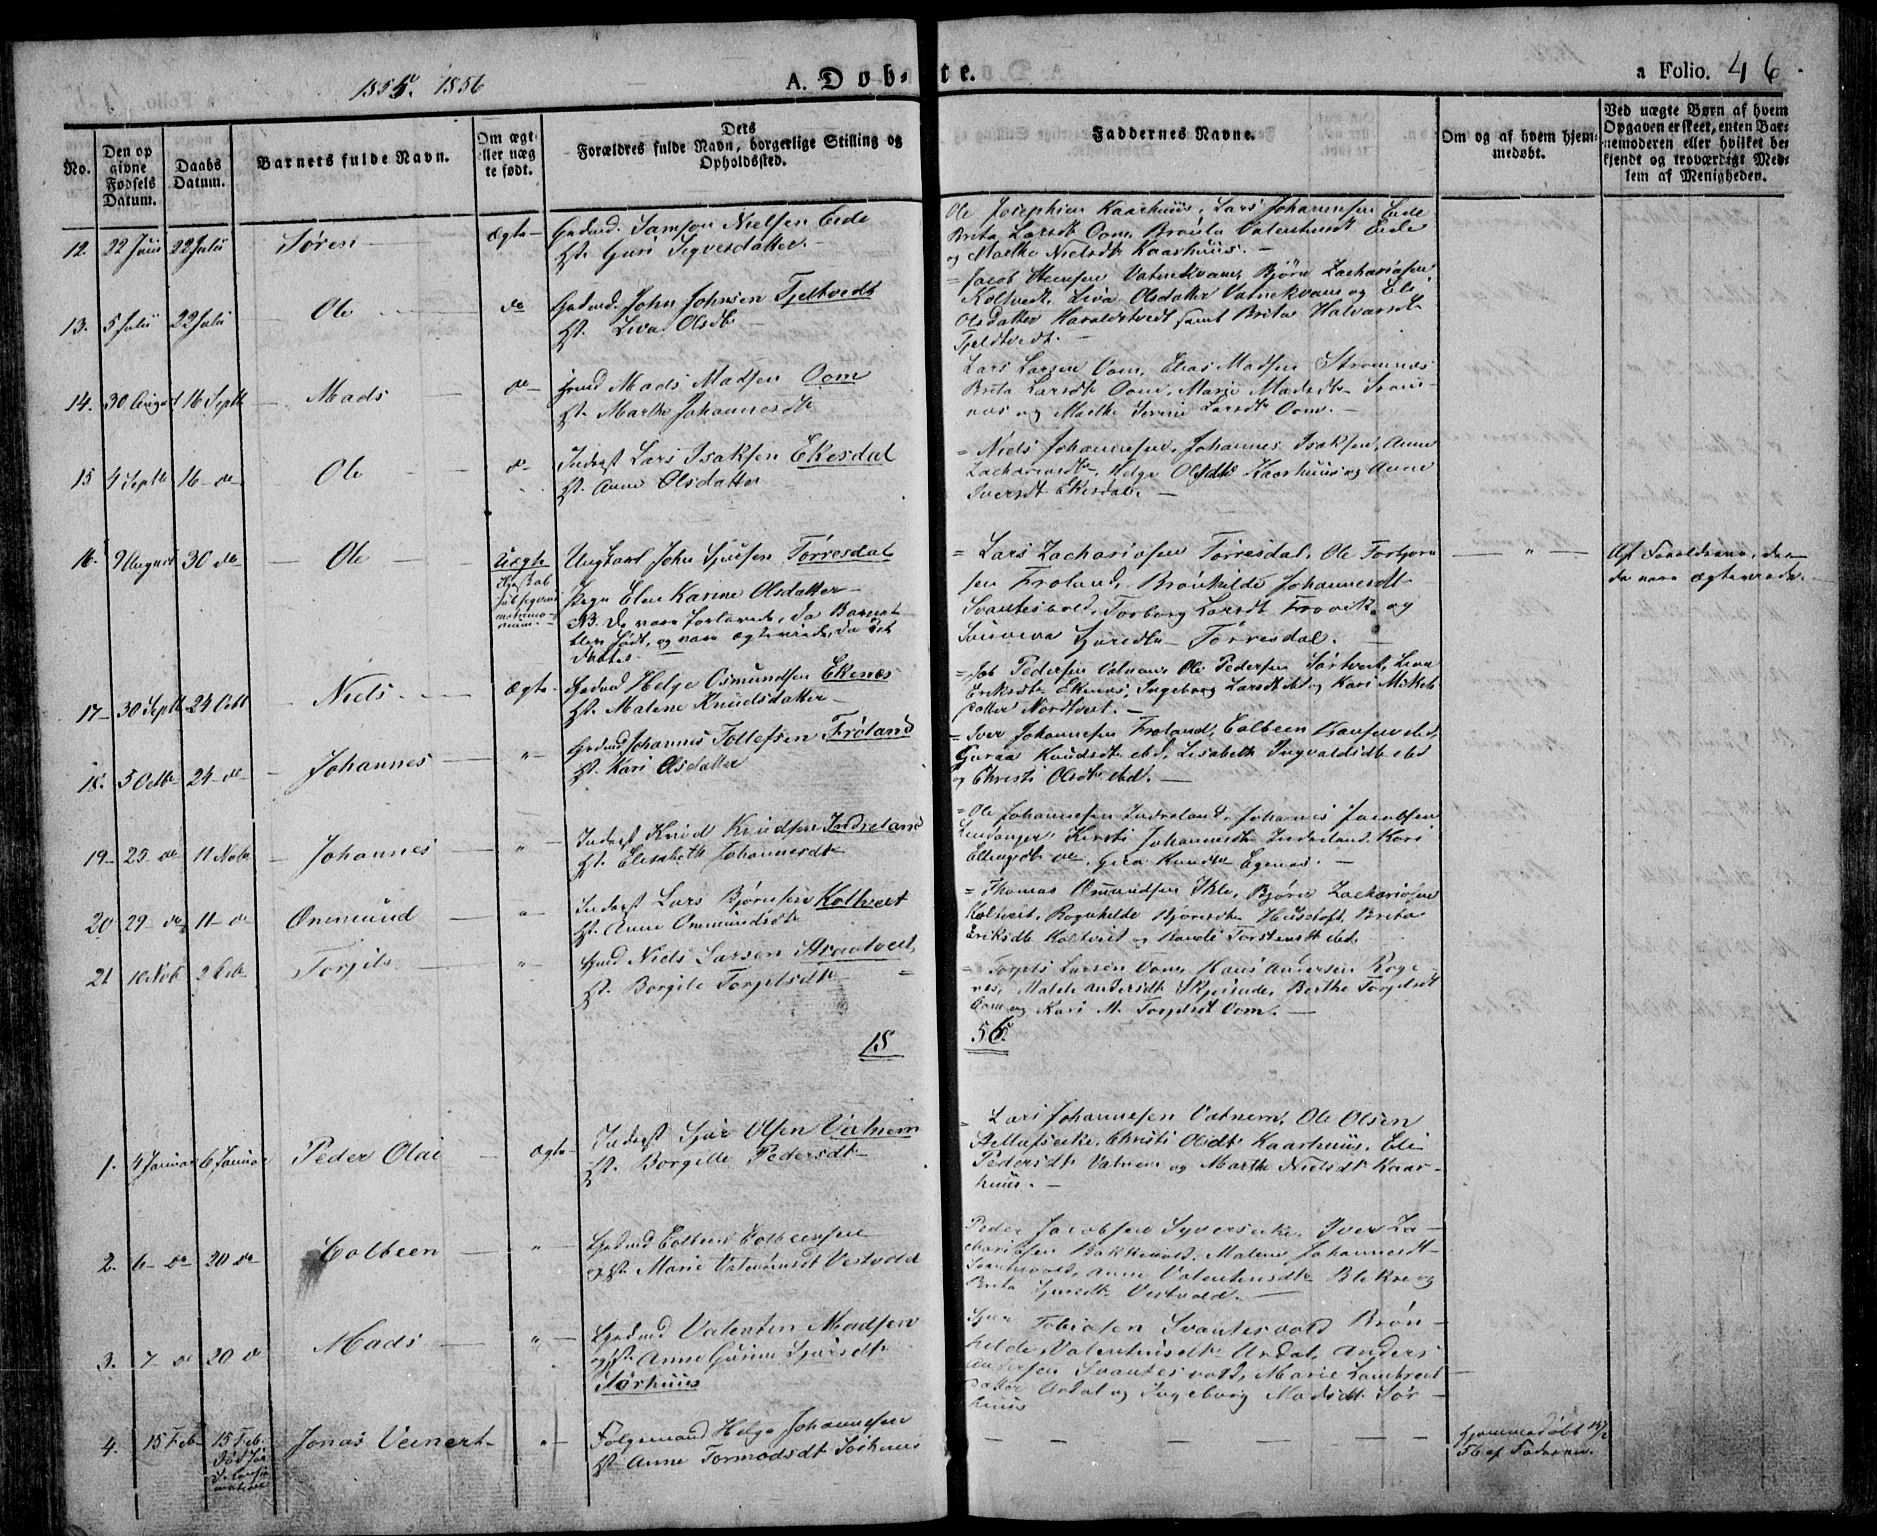 1855. 1856
A. Döbte.
a Folio. 46.
No.
Den op
givne
Födsels
Datum.
Daabs
Datum.
Barnets fulde Navn.
Om ægt
eller uæg
te födt.
Dets
Forældres fulde Navn, borgerlige Stilling og
Opholdssted.
Faddernes Navne.
Om og af hvem hjem-
medöbt.
Ved uægte Børn af hvem
Opgaven er skeet, enten Bar-
nemoderen eller hvilket be
kjendt og troværdigt Med-
lem af Menigheden.
12. 22 Juni 22 Julii Sören Ægte
Gadmd. Samson Nielsen Eide
Hst. Guri Sigvesdatter
Ole Josephsen Kaarhuus, Lars Johannesen Eide
Brita Larsdt Oom, Brønla Valentinsdt Eide
og Marthe Nielsdt Kaarhuus.
13. 5 Julii 22 Julii Ole do
Gadmd. John Johnsen Tjeltvedt
Hst. Liva Olsdt
Jacob Steensen Vatnekvam, Bjørn Zachariasen
Koltvedt, Liva Olsdatter Vatnekvam og Eli
Olsdatter Haraldstvedt samt Brita Halvarsdt
Tjeldtvedt.
14. 30 August 16 Septb Mads do
Gmd Mads Madsen Oom
Hst. Marthe Johannesdt
Lars Larsen Oom, Elias Madsen Stromnæs
Brita Larsdt Oom, Marie Madsdt Strom-
næs og Marthe Serine Larsdt Oom.
15 4 Septb 16 do Ole do
Inderst Lars Isaksen Ekesdal
Hst. Anne Olsdatter
Niels Johannesen, Johannes Isaksen, Anne
Zachariasdt, Helge Olsdt Kaarhuus og Anne
Iversdt Ekesdal.
16. 9 August 30 do Ole Uægte
Ungkarl John Sjursen Törresdal
Pige Elen Karine Olsdatter
NB. De vare forlovede, da Barnet
blev født, og vare ægteviede, da det
døbtes
Lars Zachariasen Törresdal, Ole Torbjørn
sen Froland, Brønhilde Johannesdt
Svantesvold, Torborg Larsdt Frovik og
Sünniva Sjursdtr Törresdal.
Af Forældrene, da
de vare ægteviede.
17 30 Septb 24 Octb Niels Ægte
Gadmd Helge Osmundsen Ekenæs
Hst. Malene Knudsdatter
Job Pedersen Vatnem, Ole Pedersen Sörtveit, Liva
Eriksdt Ekenæs, Ingeborg Larsdt ibd og Kari Mikels
datter Nordtveit.
18. 5 Octb 24 do Johannes
Gadmd Johannes Tollefsen Fröland
Hst. Kari Olsdatter
Iver Johannesen Froland, Colbeen Hansen ibd,
Guraa Knudsdt ibd, Lisabeth Ingvaldsdt ibd
og Christi Olsdt ibd.
19 25 do 11 Novb Johannes
Inderst Knud Knudsen Indreland
Hst. Elisabeth Johannesdt
Ole Johannesen Indreland, Johannes Jacobsen
Kirsti Johannesdt Indreland, Kari
20 29 do 11 do Ommund
Inderst Lars Bjørnsen Koltveit
Hst. Anne Ommundsdt
Thomas Osmundsen Ikle, Bjørn Zachariasen
Koltveit, Ragnhilde Bjørnsdt Heustoft, Brita
Eriksdt Koltveit og Randi Torstensdt ibd
21 10 Novb 2 Torgils
Gmd Niels Larsen Straatveit
Hst. Borgile Torgilsdt
Torgils Larsen Oom, Hans Andersen Roge
næs, Malde Andersdt Skjeinde, Berthe Torgilsdt
Oom og Kari M. Torgilsdt Oom.
18 56
1. 4 Januar 6 Januar Peder Olai Ægte
Inderst Sjur Olsen Vatnem
Hst. Borgille Pedersdt
Lars Johannesen Vatnem, Ole Olsen
Christi Olsdt Kaarhuus, Eli
Pedersdt Vatnem og Marthe Nielsdt Kaar-
huus.
2. 6 do 20 do Colbeen
Gadmd Colbeen Colbeensen
og Hst. Marie Valentinsdt Vestvold
Peder Jacobsen Syverseike, Iver Za-
chariasen Bakkevold, Malene Johannesdt
Svantesvold, Anne Valentinsdt Blekre og
Brita Sjursdt Vestvold.
3. 7 do 20 do Mads
Gadmd Valentin Madsen
og Hst. Anne Gurine Sjursdt
Sörhuus
Sjur Tobiasen Svantesvold, Brön-
hilde Valentinsdt Ardal, Anders
Andersen Svantesvold, Marie Lambrect
datter Ardal og Ingeborg Madsdt Sör-
huus
4. 15 Feb 15 Feb. Jonas Veinert
Fölgemand Helge Johannesen
Hst. Anne Tormodsdt
Hjemmedøbt 15/2
56 af Faderen.